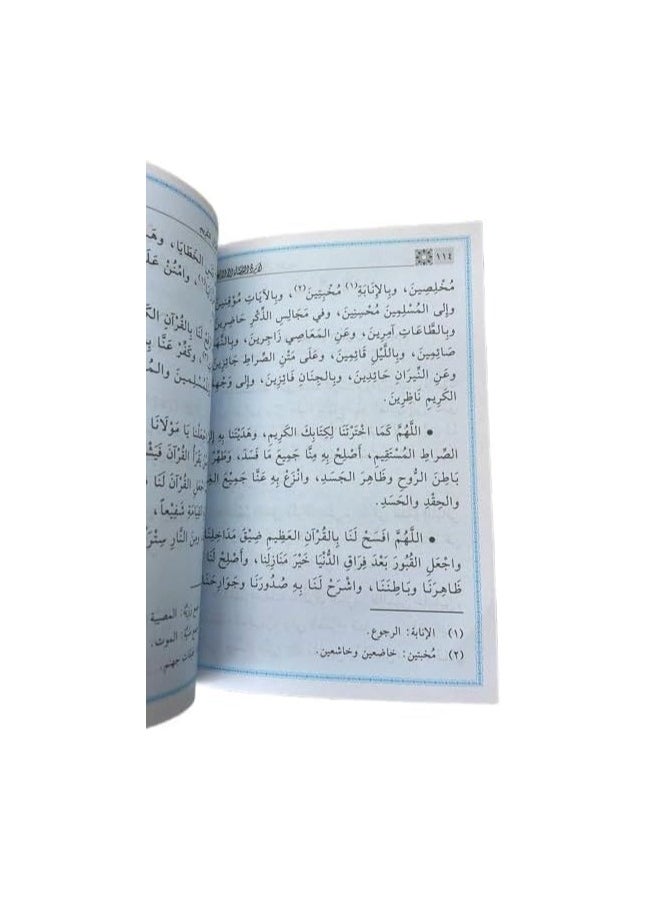 ١١٤
مُخْلِصِينَ، وَبِالإِنَابَةِ(١) مُخْبِتِينَ(٢)، وَبِالآيَاتِ
وإلى المُسْلِمِينَ مُحْسِنِينَ، وفي مَجَالِسِ الذِّكْرِ حَاضِرِينَ
وبِالطَّاعَاتِ آمِرِينَ، وعَنِ المَعَاصِي زَاجِرِينَ،
صَائِمِينَ، وبِاللَّيْلِ قَائِمِينَ، وعَلَى مَتْنِ الصِّراطِ جَائِزِينَ
وعَنِ النِّيرَانِ حَائِدِينَ، وبِالجِنَانِ فَائِزِينَ، وإلى
الكَرِيمِ نَاظِرِينَ.
• اللَّهُمَّ كَمَا اخْتَرْتَنَا لِكِتَابِكَ الكَرِيمِ، وهَدَيْتَنَا بِهِ إلى
الصِّراطِ المُسْتَقِيمِ، أَصْلِحْ بِهِ مِنَّا جَمِيعَ مَا فَسَدَ، وطَهِّرْ
بَاطِنَ الرُّوحِ وظَاهِرَ الجَسَدِ، وانْزَعْ بِهِ عَنَّا جَمِيعَ
والحِقْدِ والحَسَدِ.
• اللَّهُمَّ افْسَحْ لَنَا بِالقُرْآنِ العَظِيمِ ضِيقَ مَدَاخِلِنَا
واجْعَلِ القُبُورَ بَعْدَ فِرَاقِ الدُّنْيَا خَيْرَ مَنَازِلِنا، وأَصْلِحْ لَنَا
ظَاهِرَنَا وبَاطِنَنَا، واشْرَحْ لَنَا بِهِ صُدُورَنَا وجَوَارِحَنَا
(١) الإنابة: الرجوع.
(٢) مُخبتين: خاضعين وخاشعين.
الخَطَايَا،
وامْنُنْ
لَنَا بِالقُرْآنِ
وكَفِّرْ عَنَّا
يَا مَوْلَانَا
القُرْآنَ
القُرْآنَ لَنَا
شَفِيعاً،
ومِنَ النَّارِ سِتْراً
المصيبة
الموت.
جهنم.